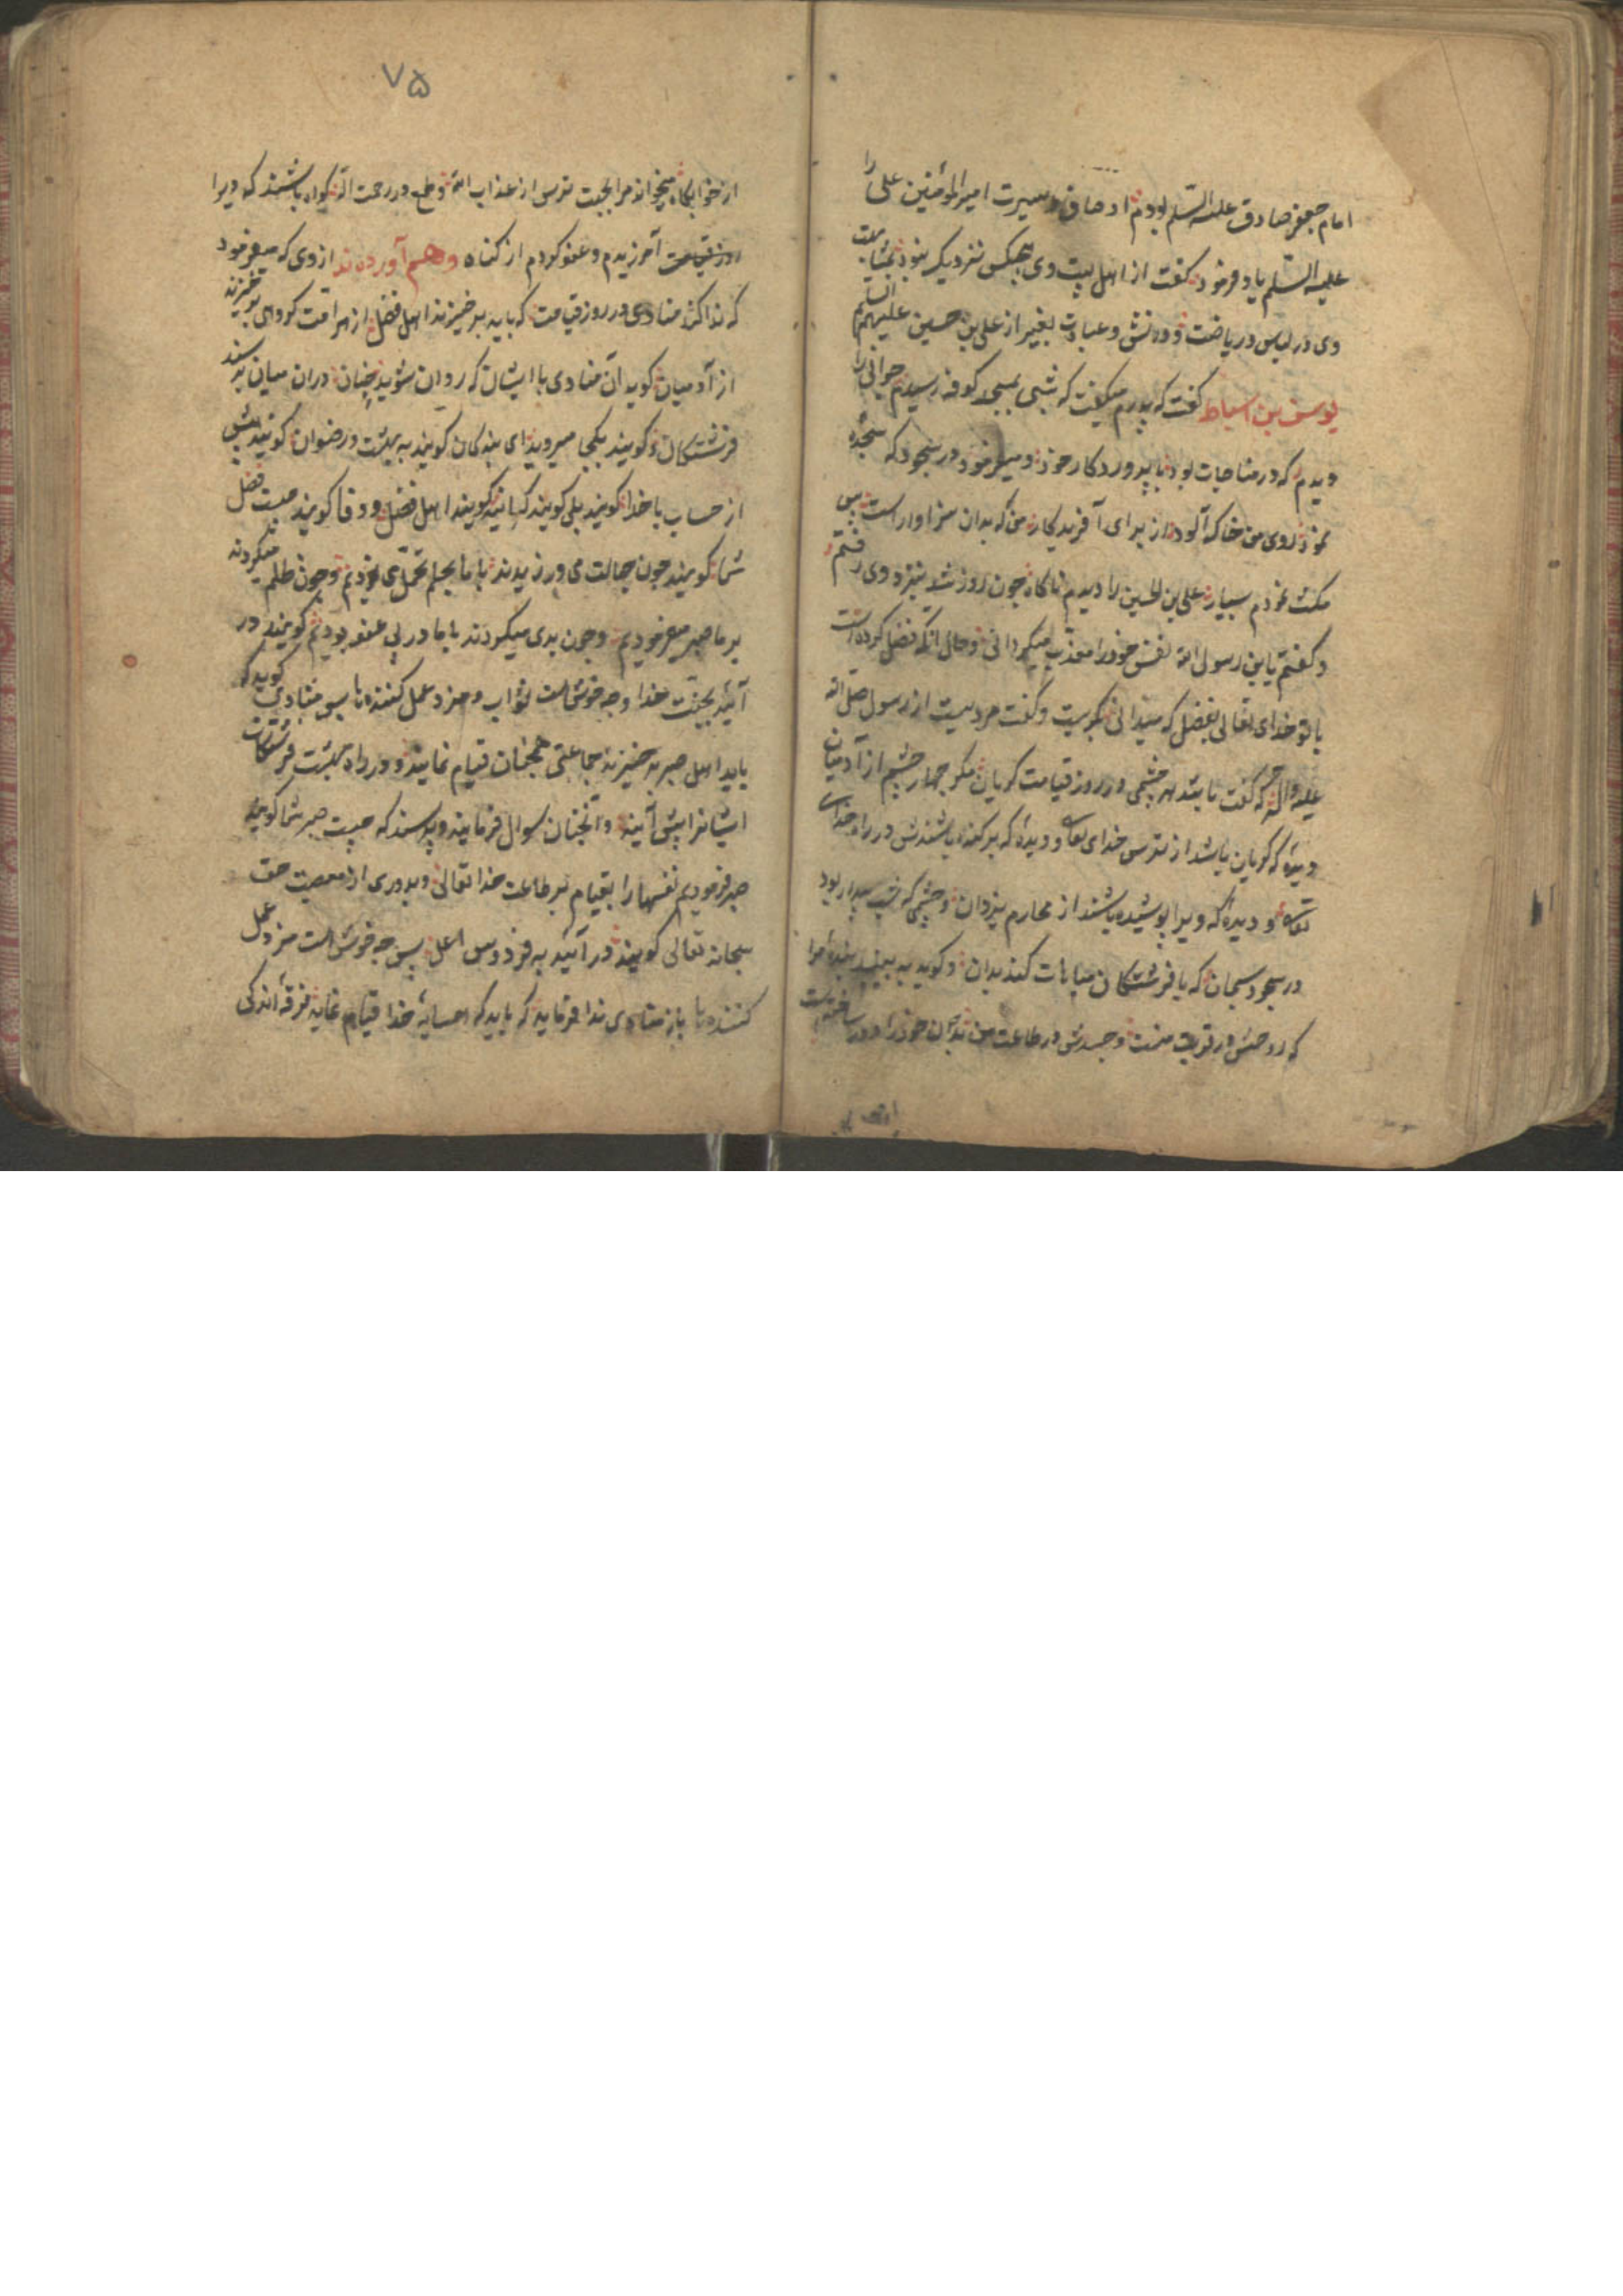 امام جعفر صادق علیه السلم بودم اوصاف و سیرت امیر المؤمنین علی را
علیه السلم یاد فرمود کفت از اهل بیت وی هیچکس نزدیکتر نبود بمشابهت
وی در لبس در ریاضت و دانش و عبادت بغیر از علی بن حسین علیهم السلم
یوسف بن اسباط کفت که پدرم میکفت که شبی بمسجد کوفه رسیدم جوانی را
دیدم که در مناجات بود با پروردکار خود و میفرمود در سجود که سجده
نمود روی من خاک آلود از برای آفریدکار من که بدان سزاوار است پس
مکث نمودم بسیار علی بن الحسین را دیدم ناکاه چون روز شد بنزد وی رفتم
و کفتم یا بن رسول الله نفس خود را معذب میکردانی و حال آنکه فضل کرده است
با تو خدای تعالی بفضل که میدانی بکریست و کفت مرویست از رسول صلی الله
علیه و آله که کفت نباشد هر چشمی در روز قیامت کریان مکر چهار چشم از آدمیان
دیدهٔ که کریان باشد از ترس خدای تعالی و دیدهٔ که برکنده باشندش در راه خدای
تعالی و دیدهٔ که ویرا پوشیده باشند از محارم یزدان و چشمی که شب بیدار بود
در سجود سبحان که با فرشتکان مباهات کند بدان و کوید به بینید بندهٔ مرا
که روحش در قربت منست و جسدش در طاعت من بدان خود را دور ساختست
۷۵
از خوابکاه میخواند مرا بجهت ترس از عذاب الله و طمع در رحمت اله کواه باشند که ویرا
روز قیامت آمرزیدم و عفو کردم از کناه و هم آورده‌اند از وی که میفرمود
که ندا کند منادی در روز قیامت که باید برخیزند اهل فضل از هر امت کروهی برخیزند
از آدمیان کوید آن منادی با ایشان که روان شوید بجنان دران میان پرسند
فرشتکان و کویند بکجا میروید ای بندکان کویند به بهشت و رضوان کویند پیش
از حساب با خدا کویند بلی کویند کیانید کویند اهل فضل و وفا کویند چیست فضل
شما کویند چون جهالت می ورزیدند با ما بحلم تحمل می نمودیم و چون ظلم میکردند
بر ما صبر میفرمودیم و چون بدی میکردند با ما در پی عفو بودیم کویند در
آئید بجنت خدا و چه خوش است ثواب و مزد عمل کننده‌ها پس منادی کوید که
باید اهل صبر برخیزند جماعتی همچنان قیام نمایند و در راه بهشت فرشتکان
ایشانرا پیش آیند و آنچنان سوال فرمایند و پرسند که چیست صبر شما کویند
صبر فرمودیم نفسها را بقیام بر طاعت خدا تعالی و بدوری از معصیت حق
سبحانه تعالی کویند در آئید به فردوس اعلی پس چه خوش است مزد عمل
کننده‌ها باز منادی ندا فرماید که باید که همسایهٔ خدا قیام نماید فرقهٔ اندکی